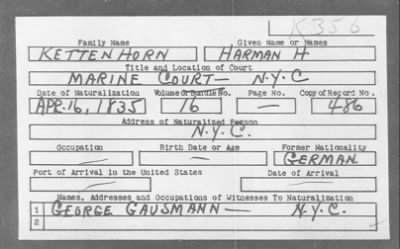 K356
Family Name Given Name or Names
KETTENHORN HARMAN H
Title and Location of Court
MARINE COURT— N.Y.C
Date of Naturalization Volume Or Bundle No. Page No. Copy of Record No.
APR. 16, 1835 16 — 486
Address of Naturalized Person
N.Y.C.
Occupation Birth Date or Age Former Nationality
— — GERMAN
Port of Arrival in the United States Date of Arrival
— —
Names, Addresses and Occupations of Witnesses To Naturalization
1 GEORGE GAUSMANN — N.Y.C.
2